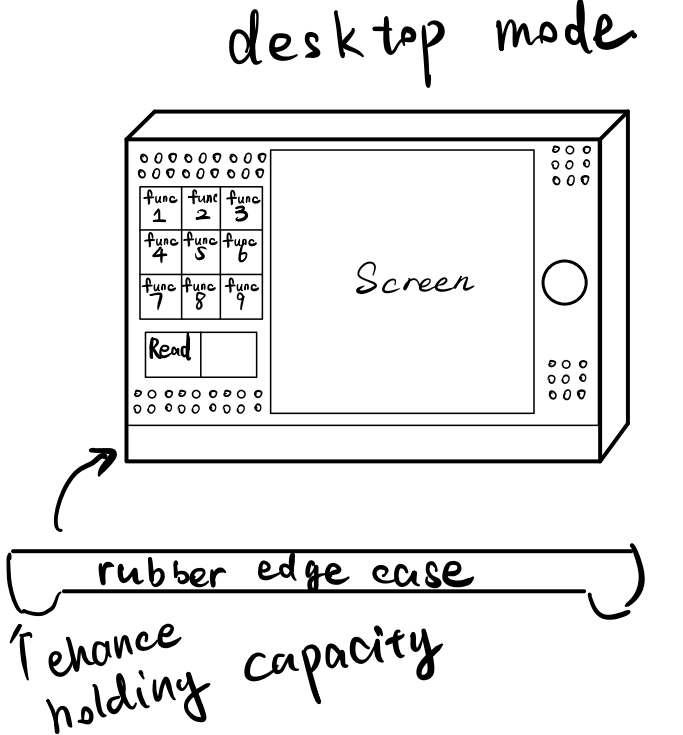 desktop mode
func func func
1 2 3
func func func
4 5 6
func func func
7 8 9
Screen
Read
rubber edge case
ehance
holding capacity